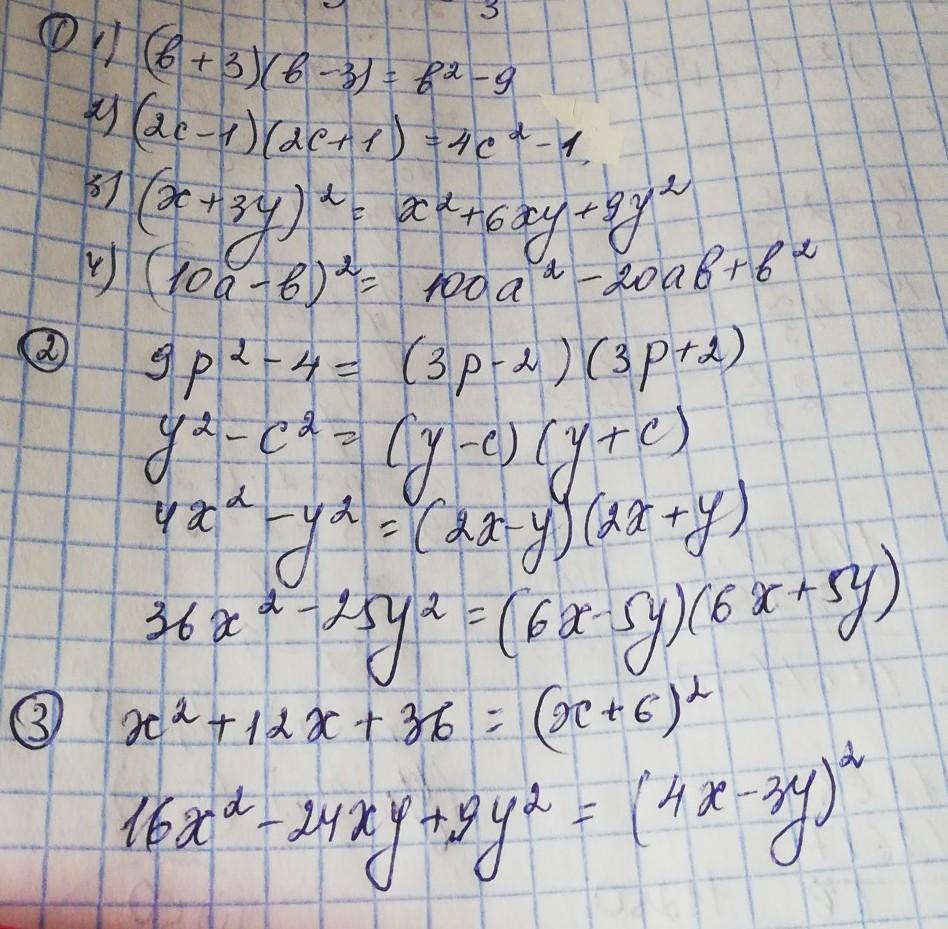 ① 1) (в + 3)(в - 3) = в² - 9
2) (2с - 1)(2с + 1) = 4с² - 1
3) (x + 3y)² = x² + 6xy + 9y²
4) (10а - в)² = 100а² - 20ав + в²
② 9p² - 4 = (3p - 2)(3p + 2)
y² - c² = (y - c)(y + c)
4x² - y² = (2x - y)(2x + y)
36x² - 25y² = (6x - 5y)(6x + 5y)
③ x² + 12x + 36 = (x + 6)²
16x² - 24xy + 9y² = (4x - 3y)²